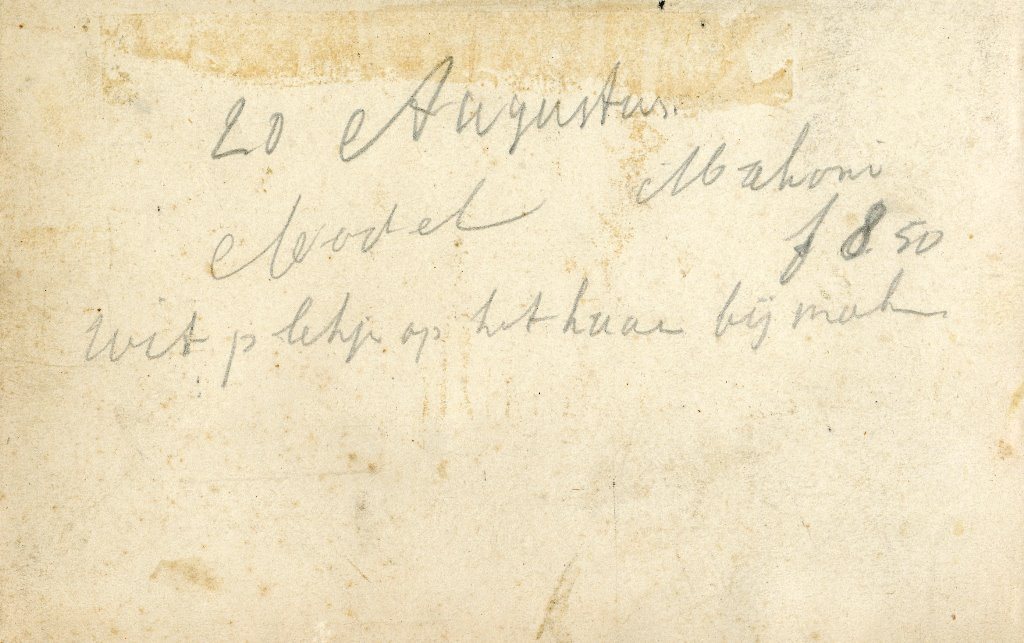 20 Augustus.
Model Mahoni
f 8.50
wit plekje op het haar bij mak